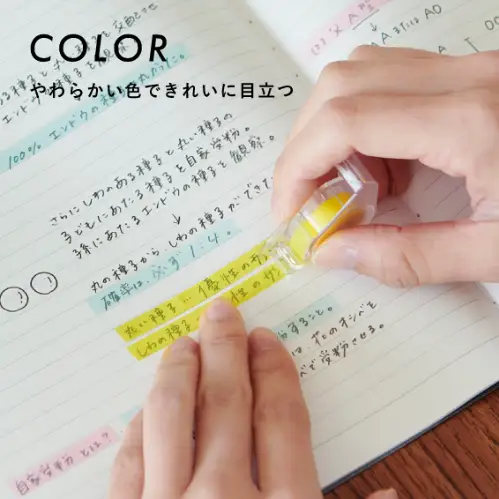 COLOR
やわらかい色できれいに目立つ
父 A型
AA または AO
100% エンドウの種
さらに しわのある種子と丸い種子の
子どもにあたる種子を自家受粉。
孫にあたるエンドウの種子を観察。
↓
丸の種子から しわの種子ができた
確率は、必ず 1:4。
丸い種子… 優性の
しわの種子 性の形
すること。
は、花のオシベを
べで受粉させる。
自家受粉とは?